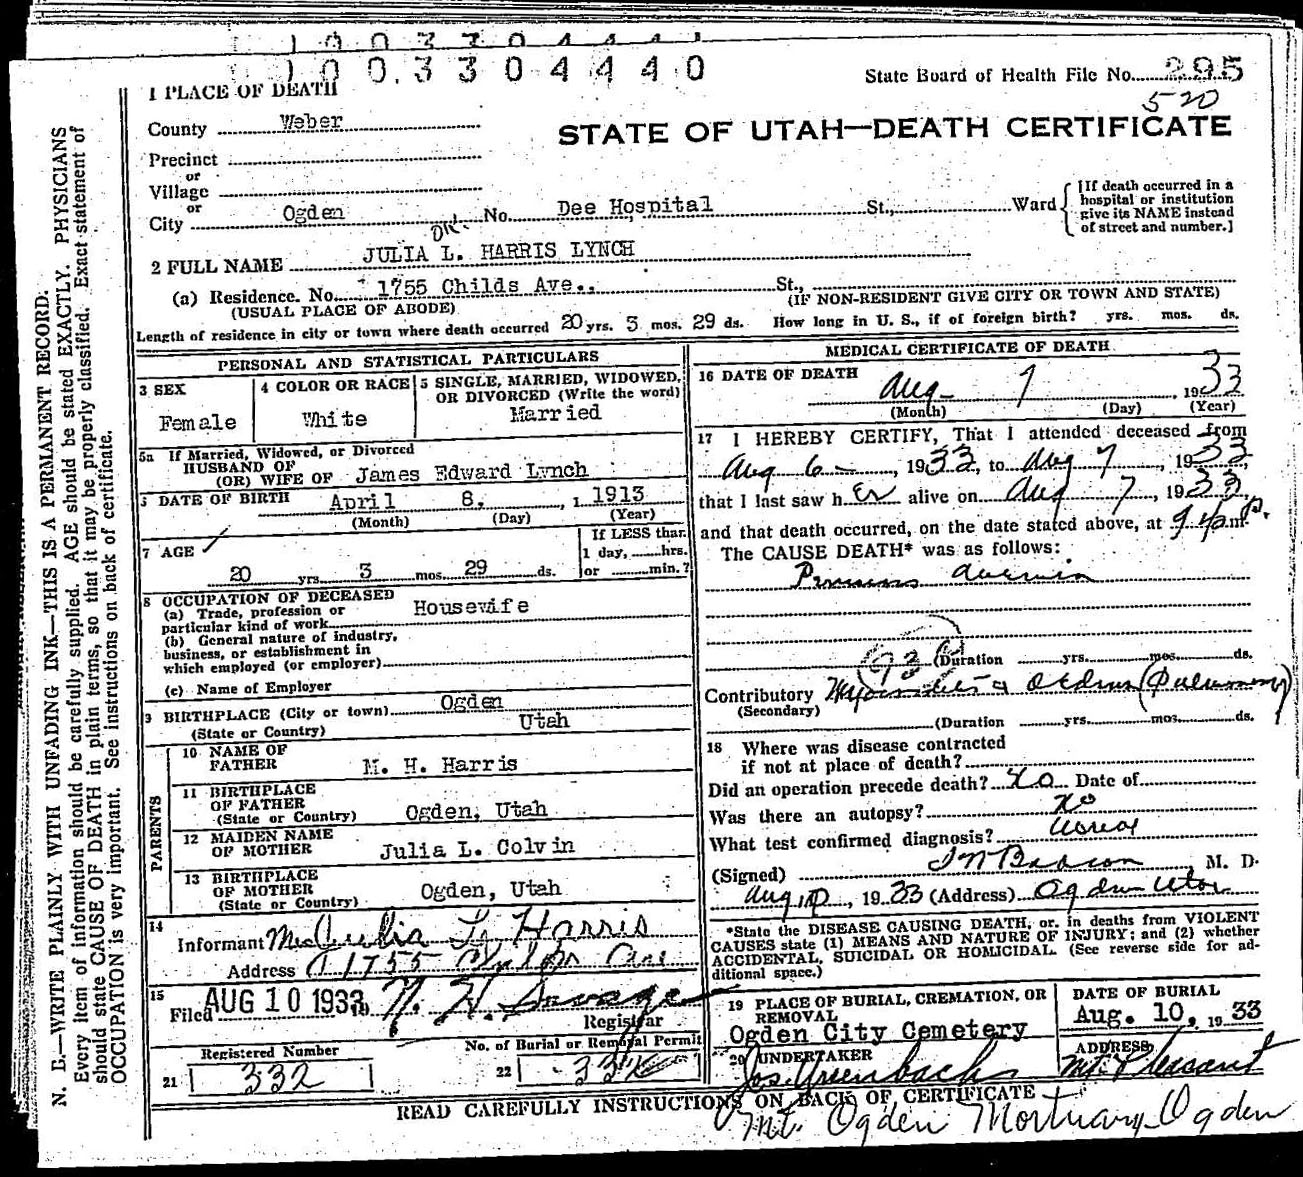 1003304440
State Board of Health File No. 295
520
1 PLACE OF DEATH
STATE OF UTAH—DEATH CERTIFICATE
County Weber
Precinct
or
Village
or
City Ogden No. Dee Hospital St., Ward
[If death occurred in a hospital or institution give its NAME instead of street and number.]
2 FULL NAME JULIA L. HARRIS LYNCH
(a) Residence. No. 1755 Childs Ave.. St.,
(USUAL PLACE OF ABODE) (IF NON-RESIDENT GIVE CITY OR TOWN AND STATE)
Length of residence in city or town where death occurred 20 yrs. 3 mos. 29 ds. How long in U. S., if of foreign birth? yrs. mos. ds.
PERSONAL AND STATISTICAL PARTICULARS
3 SEX
Female
4 COLOR OR RACE
White
5 SINGLE, MARRIED, WIDOWED, OR DIVORCED (Write the word)
Married
5a If Married, Widowed, or Divorced
HUSBAND OF
(OR) WIFE OF James Edward Lynch
DATE OF BIRTH April 8, 1 1913
(Month) (Day) (Year)
7 AGE
20 yrs. 3 mos. 29 ds.
If LESS than
1 day, hrs.
or min.?
8 OCCUPATION OF DECEASED
(a) Trade, profession or
particular kind of work Housewife
(b) General nature of industry,
business, or establishment in
which employed (or employer)
(c) Name of Employer
9 BIRTHPLACE (City or town) Ogden
(State or Country) Utah
PARENTS
10 NAME OF
FATHER M. H. Harris
11 BIRTHPLACE
OF FATHER
(State or Country) Ogden, Utah
12 MAIDEN NAME
OF MOTHER Julia L. Colvin
13 BIRTHPLACE
OF MOTHER
(State or Country) Ogden, Utah
14
Informant Mrs Julia L. Harris
Address 1755 Ave
15
Filed AUG 10 1933 N. H. Savage
Registrar
Registered Number
21 332
No. of Burial or Removal Permit
22 332
MEDICAL CERTIFICATE OF DEATH
16 DATE OF DEATH
Aug 7, 1933
(Month) (Day) (Year)
17 I HEREBY CERTIFY, That I attended deceased from
Aug 6, 1933, to Aug 7, 1933,
that I last saw her alive on Aug 7, 1933,
and that death occurred, on the date stated above, at m.
The CAUSE DEATH* was as follows:
(Duration yrs. mos. ds.
Contributory (Pulmonary)
(Secondary)
(Duration yrs. mos. ds.
18 Where was disease contracted
if not at place of death?
Did an operation precede death? No Date of
Was there an autopsy? No
What test confirmed diagnosis?
(Signed) M. D.
Aug 10, 1933 (Address) Ogden Utah
*State the DISEASE CAUSING DEATH, or, in deaths from VIOLENT
CAUSES state (1) MEANS AND NATURE OF INJURY; and (2) whether
ACCIDENTAL, SUICIDAL OR HOMICIDAL. (See reverse side for ad-
ditional space.)
19 PLACE OF BURIAL, CREMATION, OR
REMOVAL
Ogden City Cemetery
DATE OF BURIAL
Aug. 10, 1933
20 UNDERTAKER
Jos. Greenbachs
ADDRESS
Mt. Pleasant
READ CAREFULLY INSTRUCTIONS ON BACK OF CERTIFICATE
Mt. Ogden Mortuary Ogden
N. B.—WRITE PLAINLY WITH UNFADING INK—THIS IS A PERMANENT RECORD.
Every item of information should be carefully supplied. AGE should be stated EXACTLY. PHYSICIANS
should state CAUSE OF DEATH in plain terms, so that it may be properly classified. Exact statement of
OCCUPATION is very important. See instructions on back of certificate.